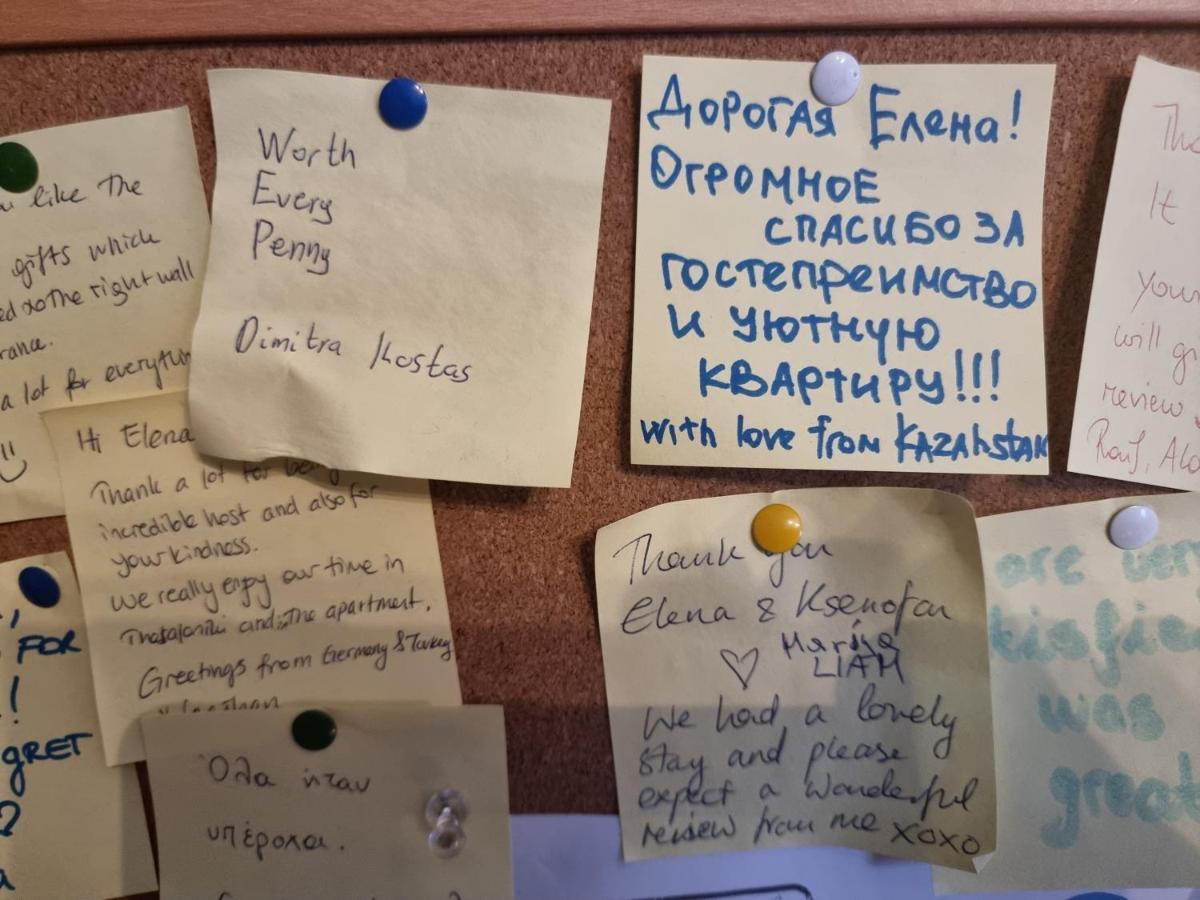 u like the
gifts which
ed to the right wall
rance.
a lot for everythin
Worth
Every
Penny
Dimitra Kostas
Дорогая Елена!
Огромное
спасибо за
гостепреимство
и уютную
квартиру!!!
with love from Kazahstan
Tha
It
your
will gi
review
Hi Elena
Thank a lot for being
incredible host and also for
your kindness.
we really enjoy our time in
and the apartment.
Greetings from Germany & Turkey
FOR
!
GRET
Όλα ήταν
υπέροχα.
Thank you
Elena & Ksenofon
♡ Mariza
LIAM
We had a lovely
stay and please
expect a wonderful
review from me xoxo
are very
tisfie
was
great